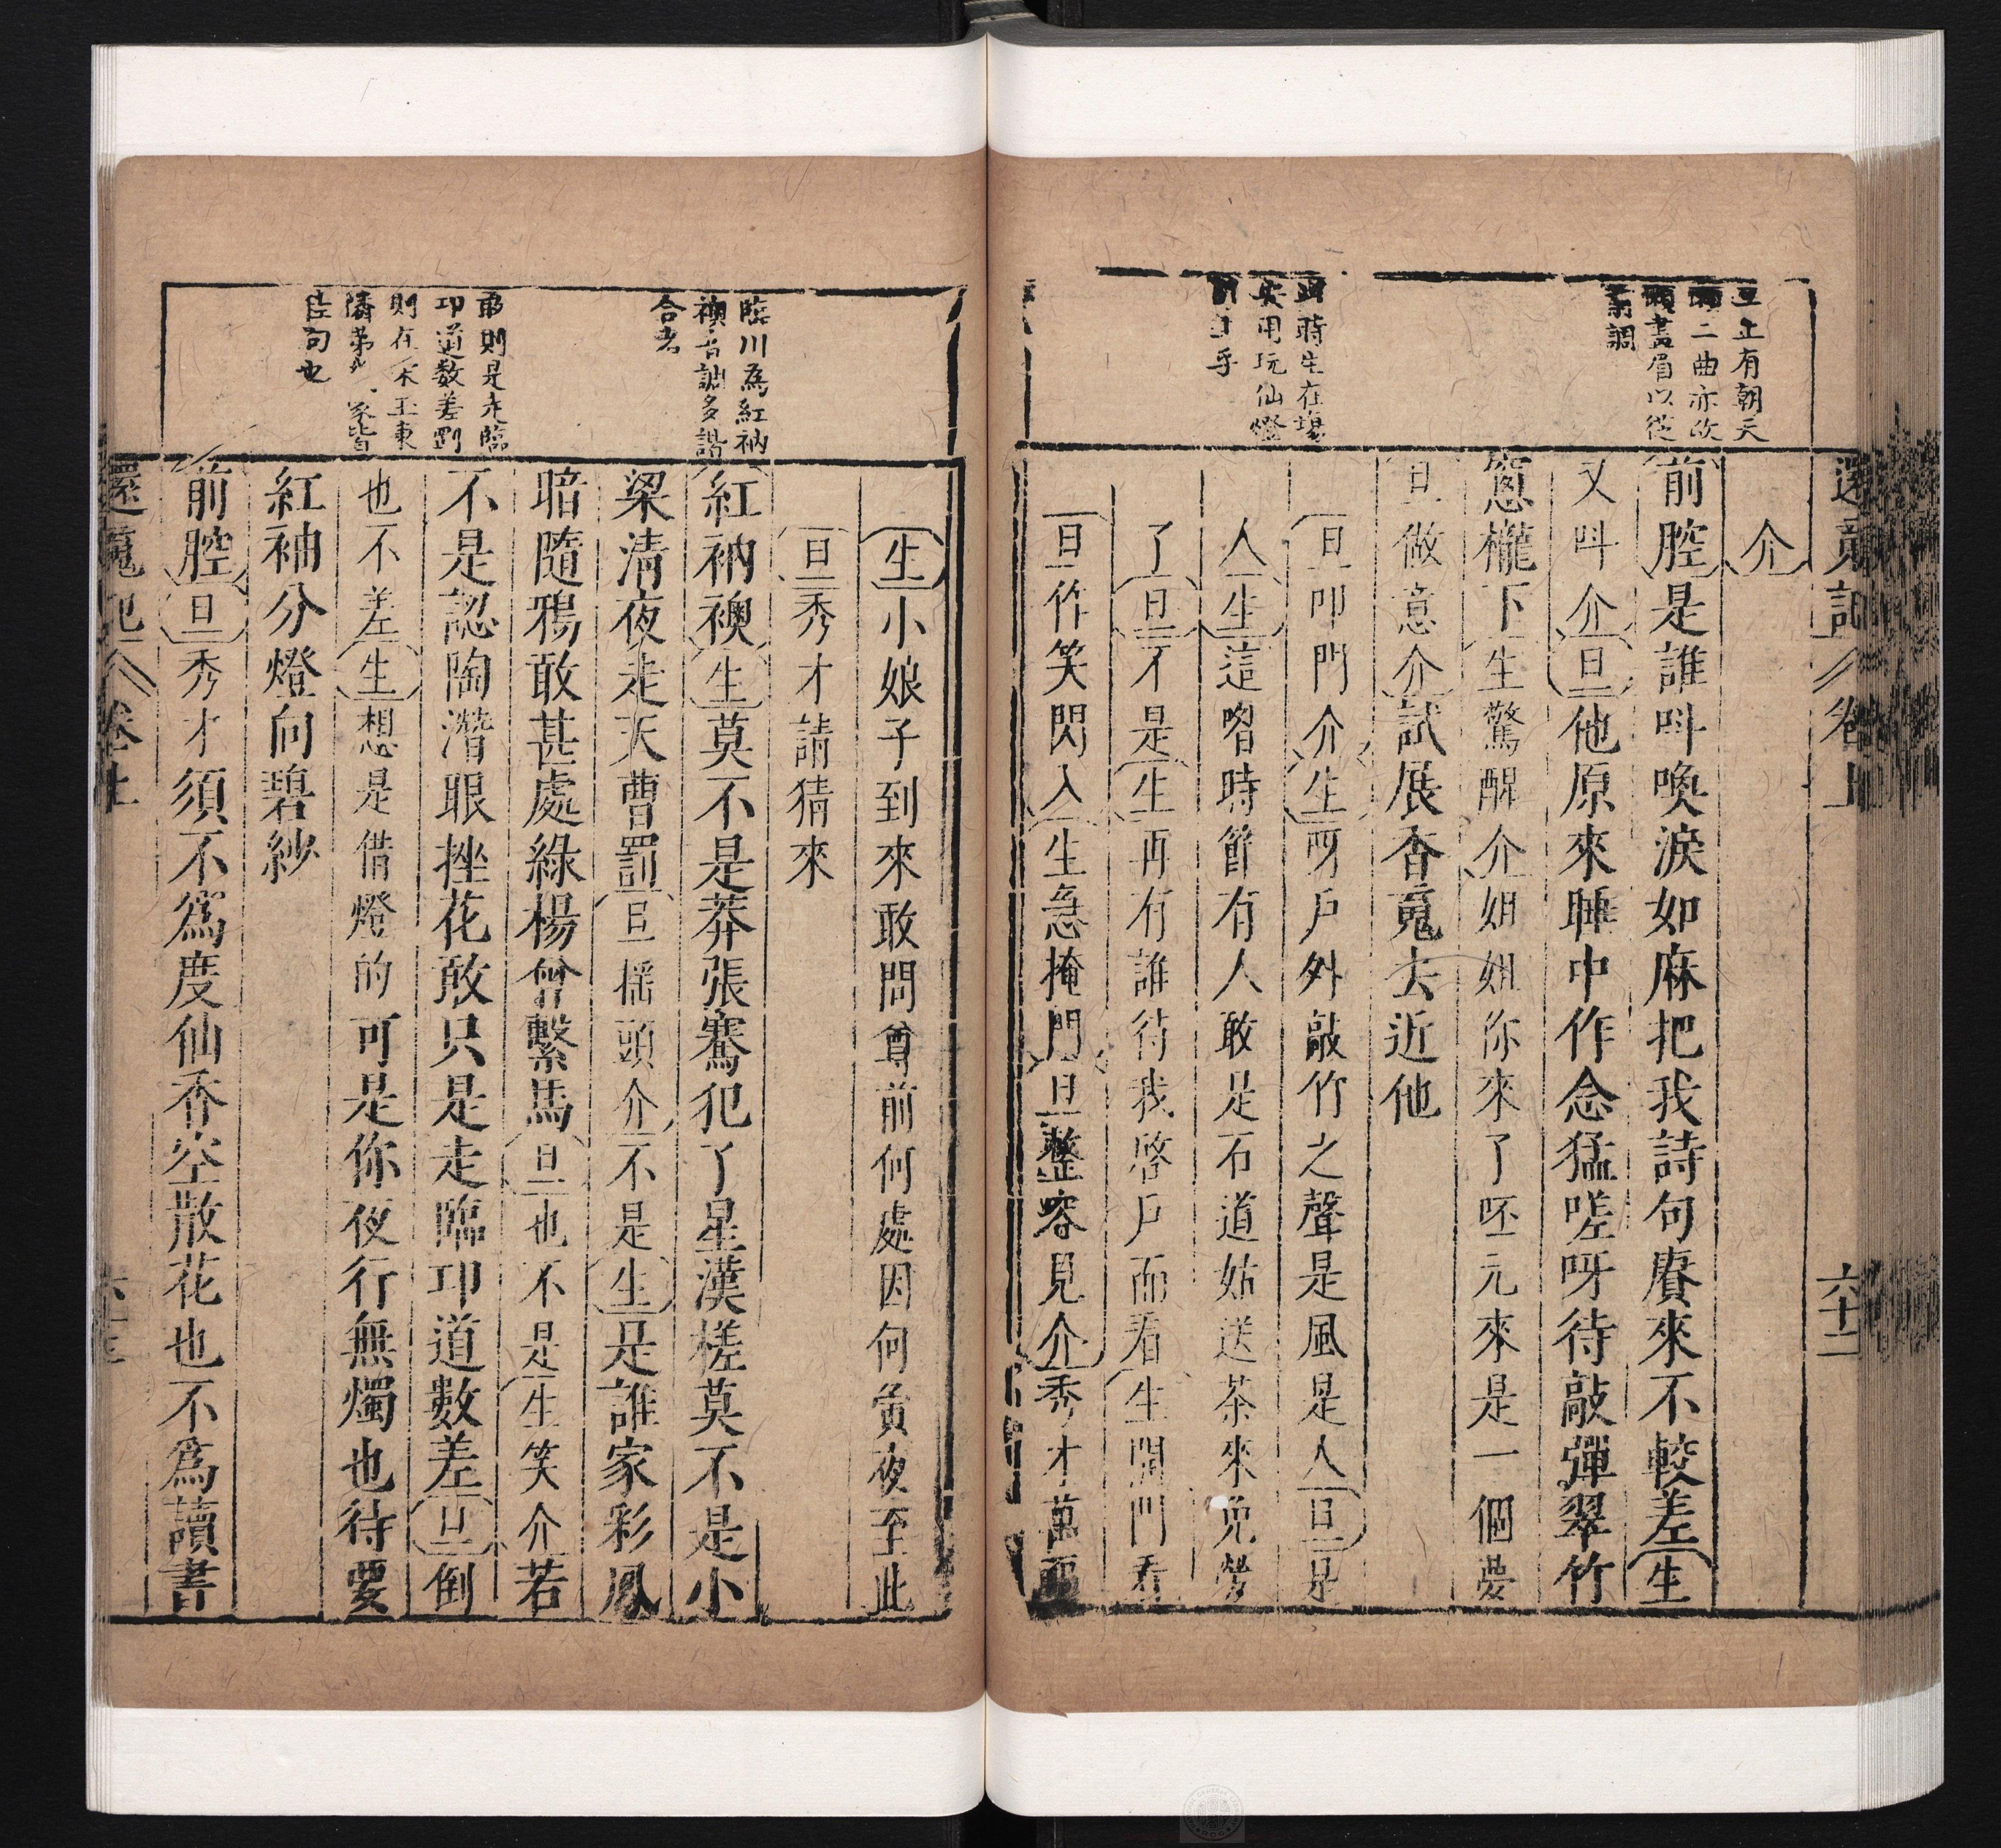 還魂記
卷上
六十二
旦上有朝天
懶二曲亦改
懶畫眉以從
本調
此時生在場
安用玩仙燈
乎
介
前腔是誰呌喚淚如麻把我詩句賡來不較差生
又呌介旦他原來睡中作念猛嗟呀待敲彈翠竹
窻櫳下生驚醒介姐姐你來了呸元來是一個夢
旦做意介試展香魂去近他
旦叩門介生呀戶外敲竹之聲是風是人旦是
人生這喒時節有人敢是石道姑送茶來免勞
了旦不是生再有誰待我啓戶而看生開門看
旦作笑閃入生急掩門旦整容見介秀才萬福
臨川爲紅衲
襖古訕多諧
合者
敢則是走臨
卭道數差到
則在宋玉東
隣第幾家皆
佳句也
生小娘子到來敢問尊前何處因何夤夜至此
旦秀才請猜來
紅衲襖生莫不是莽張騫犯了星漢槎莫不是小
梁清夜走天曹罰旦搖頭介不是生是誰家彩鳳
暗隨鴉敢甚處綠楊曾繫馬旦也不是生笑介若
不是認陶潛眼挫花敢只是走臨卭道數差旦倒
也不差生想是借燈的可是你夜行無燭也待要
紅袖分燈向碧紗
前腔旦秀才須不爲度仙香空散花也不爲讀書
還魂記
卷上